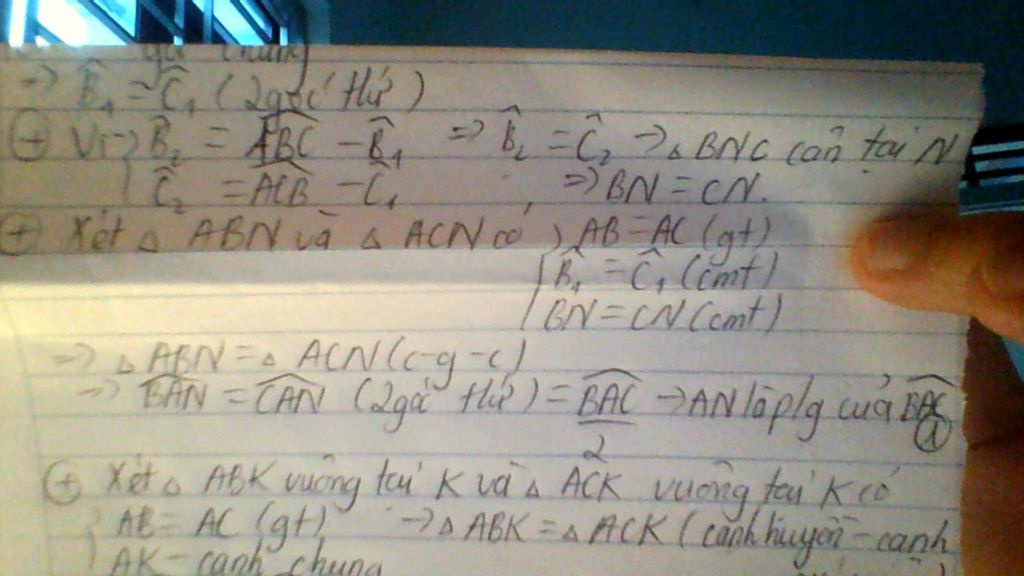 góc chung
=> B̂₁ = Ĉ₁ (2góc t/ứ)
⊕ Vì { B̂₂ = ABC - B̂₁ => B̂₂ = Ĉ₂ → △ BNC cân tại N
Ĉ₂ = ACB - Ĉ₁ => BN = CN.
⊕ Xét △ ABN và △ ACN có { AB = AC (gt)
B̂₁ = Ĉ₁ (cmt)
BN = CN (cmt)
=> △ ABN = △ ACN (c-g-c)
=> BAN = CAN (2góc t/ứ) = BAC/2 → AN là p/g của BAC ①
⊕ Xét △ ABK vuông tại K và △ ACK vuông tại K có
AB = AC (gt) → △ ABK = △ ACK (cạnh huyền - cạnh
AK - cạnh chung